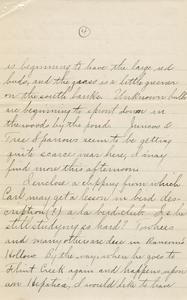 4
is beginning to have the large red
buds, and the grass is a little greener
on the south banks. Unknown bulbs
are beginning to sprout down in
the woods by the pond. Juncos &
Tree Sparrows seem to be getting
quite scarce near here, I may
find more this afternoon.
I enclose a clipping from which
Carl may get a lesson in bird des-
cription (?) à la bird club. Is he
still studying so hard? Towhees
and many others are due in Ransom's
Hollow. By the way, when he goes to
Flint Creek again and happens upon
an Hepatica, I would like to have